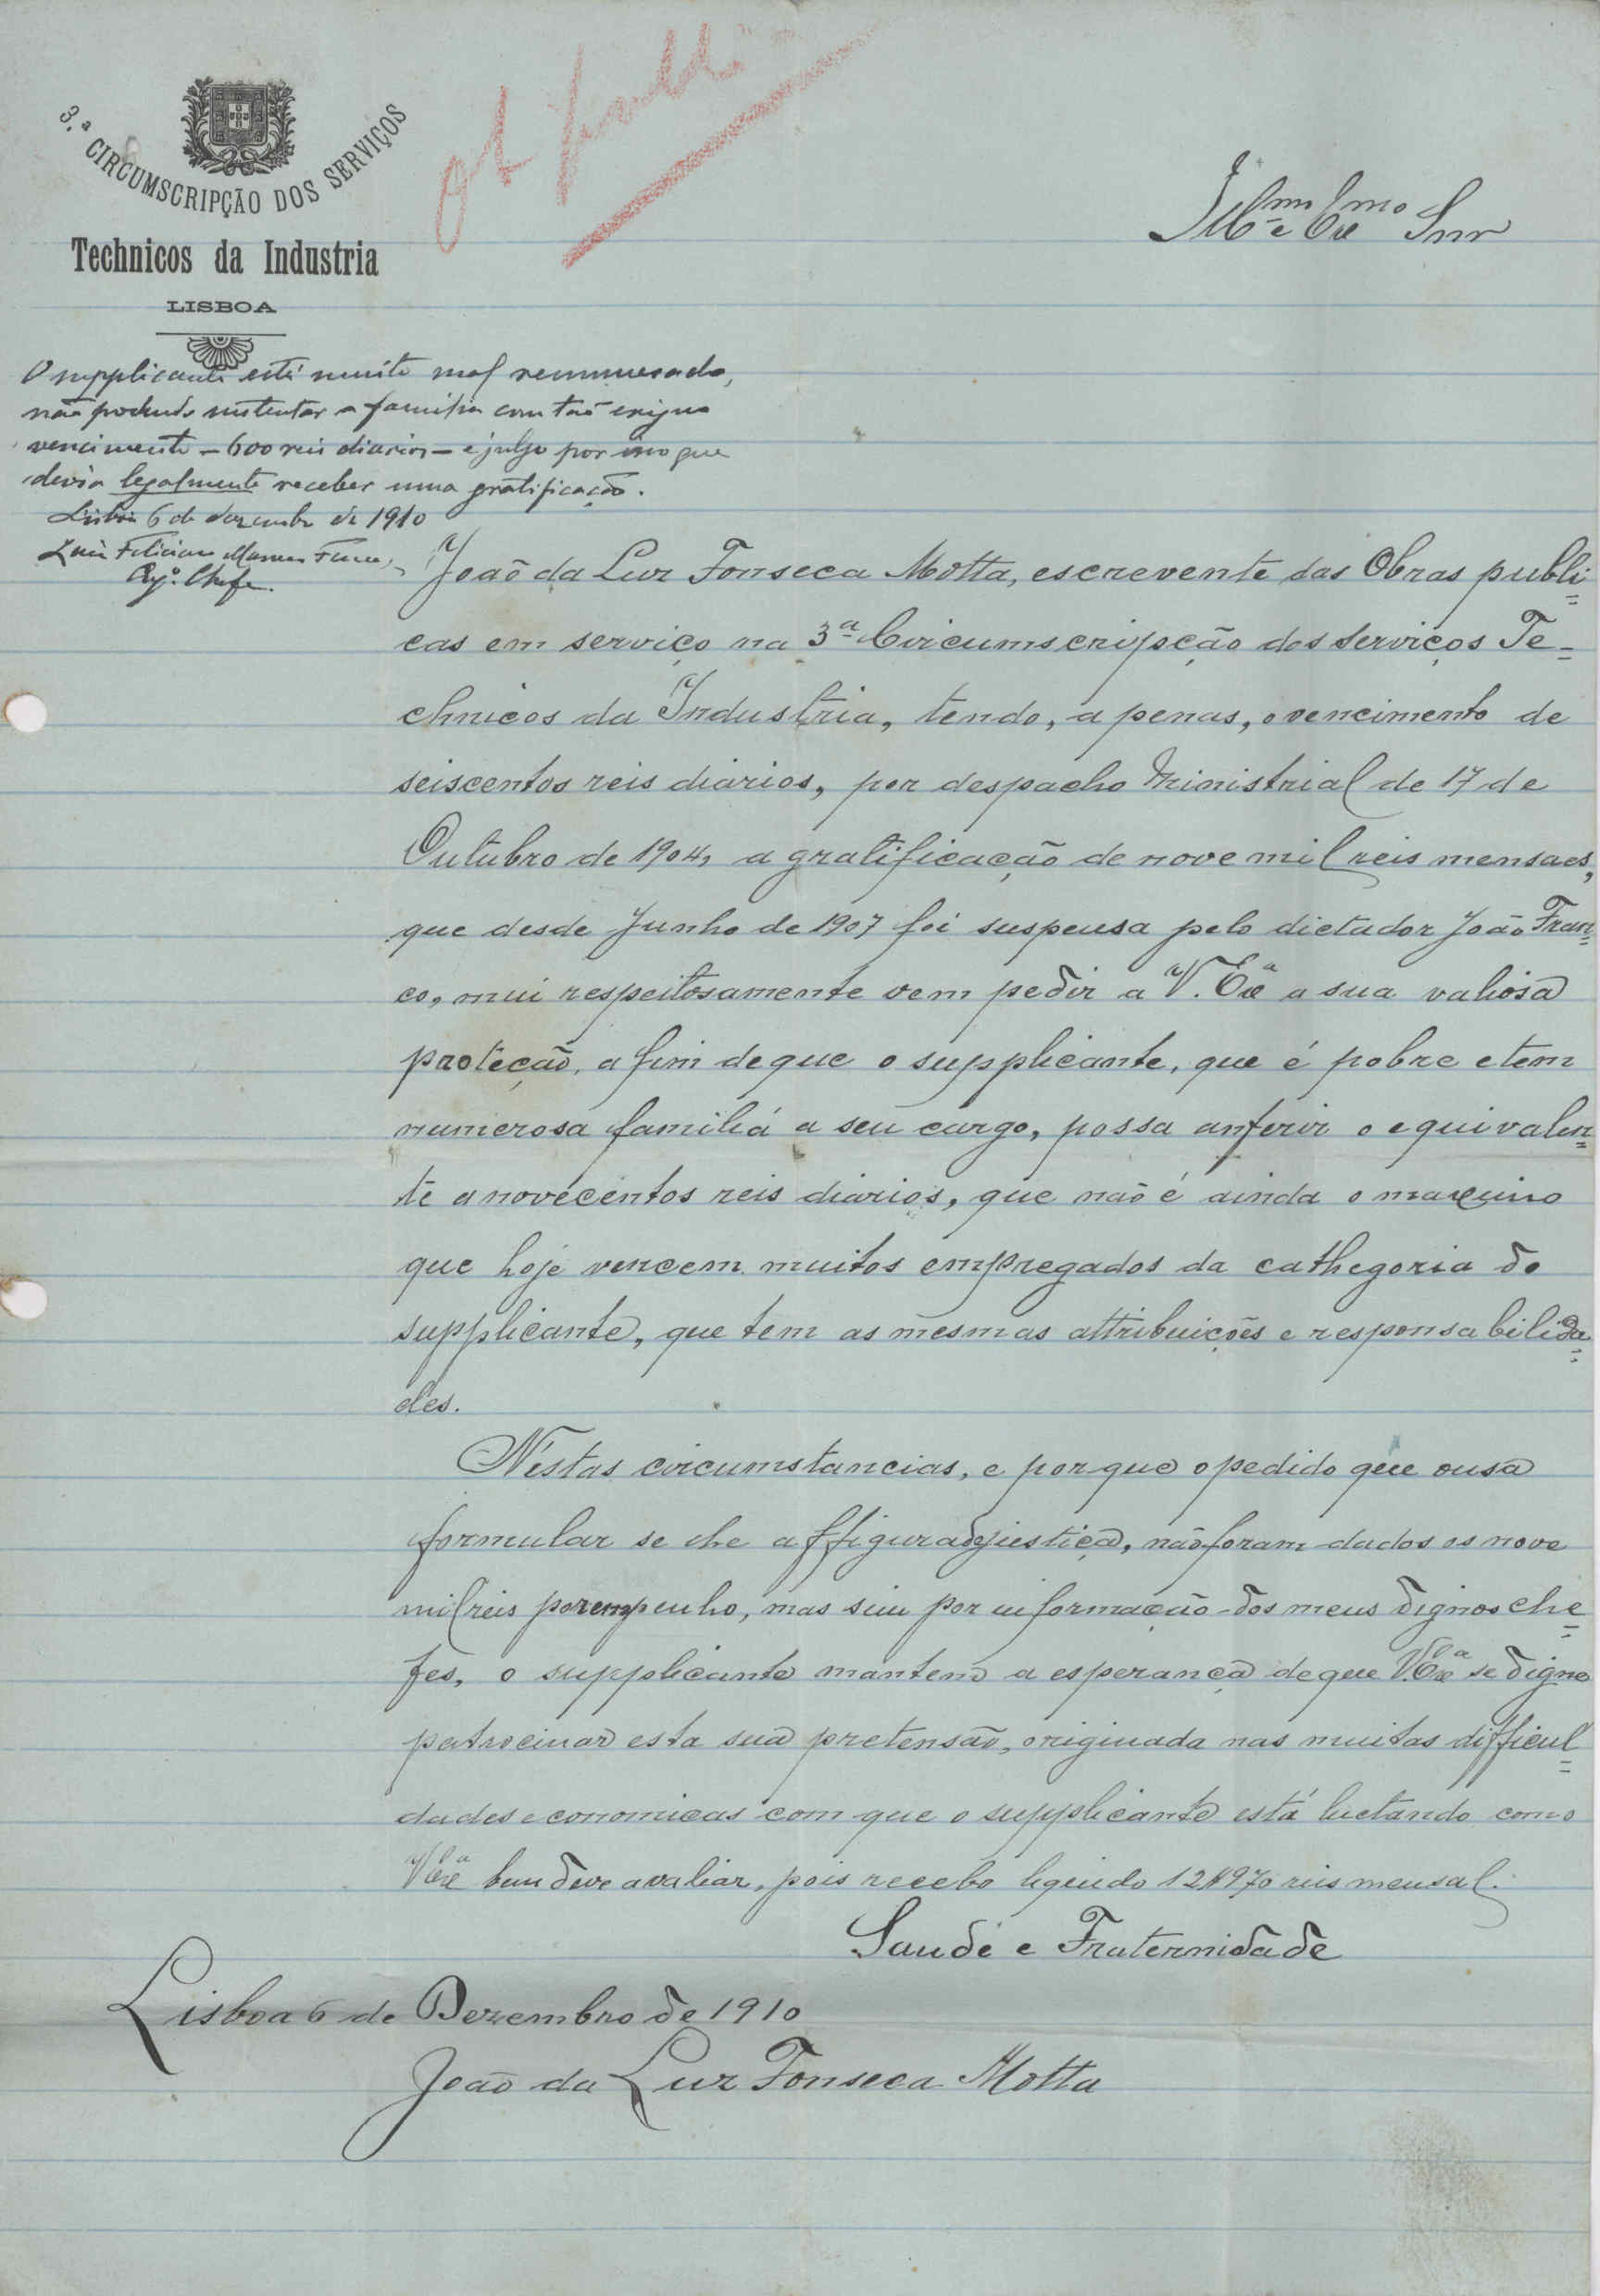 3.ª CIRCUMSCRIPÇÃO DOS SERVIÇOS
Technicos da Industria
LISBOA
Illmo e Exmo Snr
O supplicante está muito mal remunerado,
não podendo sustentar a familia com tão exiguo
vencimento – 600 reis diarios – e julgo por isso que
devia legalmente receber uma gratificação.
Lisboa 6 de dezembro de 1910
Luiz Feliciano Marrecas Ferreira
Engº. Chefe.
João da Luz Fonseca Motta, escrevente das Obras publi=
cas em serviço na 3ª Circumscripção dos Serviços Te=
chnicos da Industria, tendo, apenas, o vencimento de
seiscentos reis diarios, por despacho Ministrial de 17 de
Outubro de 1904, a gratificação de nove mil reis mensaes,
que desde Junho de 1907 foi suspensa pelo dictador João Fran=
co, mui respeitosamente vem pedir a V. Exª a sua valiosa
proteção, a fim de que o supplicante, que é pobre e tem
numerosa familiá a seu cargo, possa auferir o equivalen=
te a novecentos reis diarios, que não é ainda o maximo
que hoje vencem muitos empregados da cathegoria do
supplicante, que tem as mesmas attribuições e responsabilida=
des.
N'estas circumstancias, e porque o pedido que ousa
formular se lhe affigura de justiça, não foram dados os nove
mil reis por empenho, mas sim por informação dos meus dignos che=
fes, o supplicante mantem a esperança de que V. Exª se digne
patrocinar esta sua pretensão, originada nas muitas difficul=
dades economicas com que o supplicante está luctando como
V. Exª bem deve avaliar, pois recebo liquido 12$970 reis mensal.
Saude e Fraternidade
Lisboa 6 de Dezembro de 1910
João da Luz Fonseca Motta